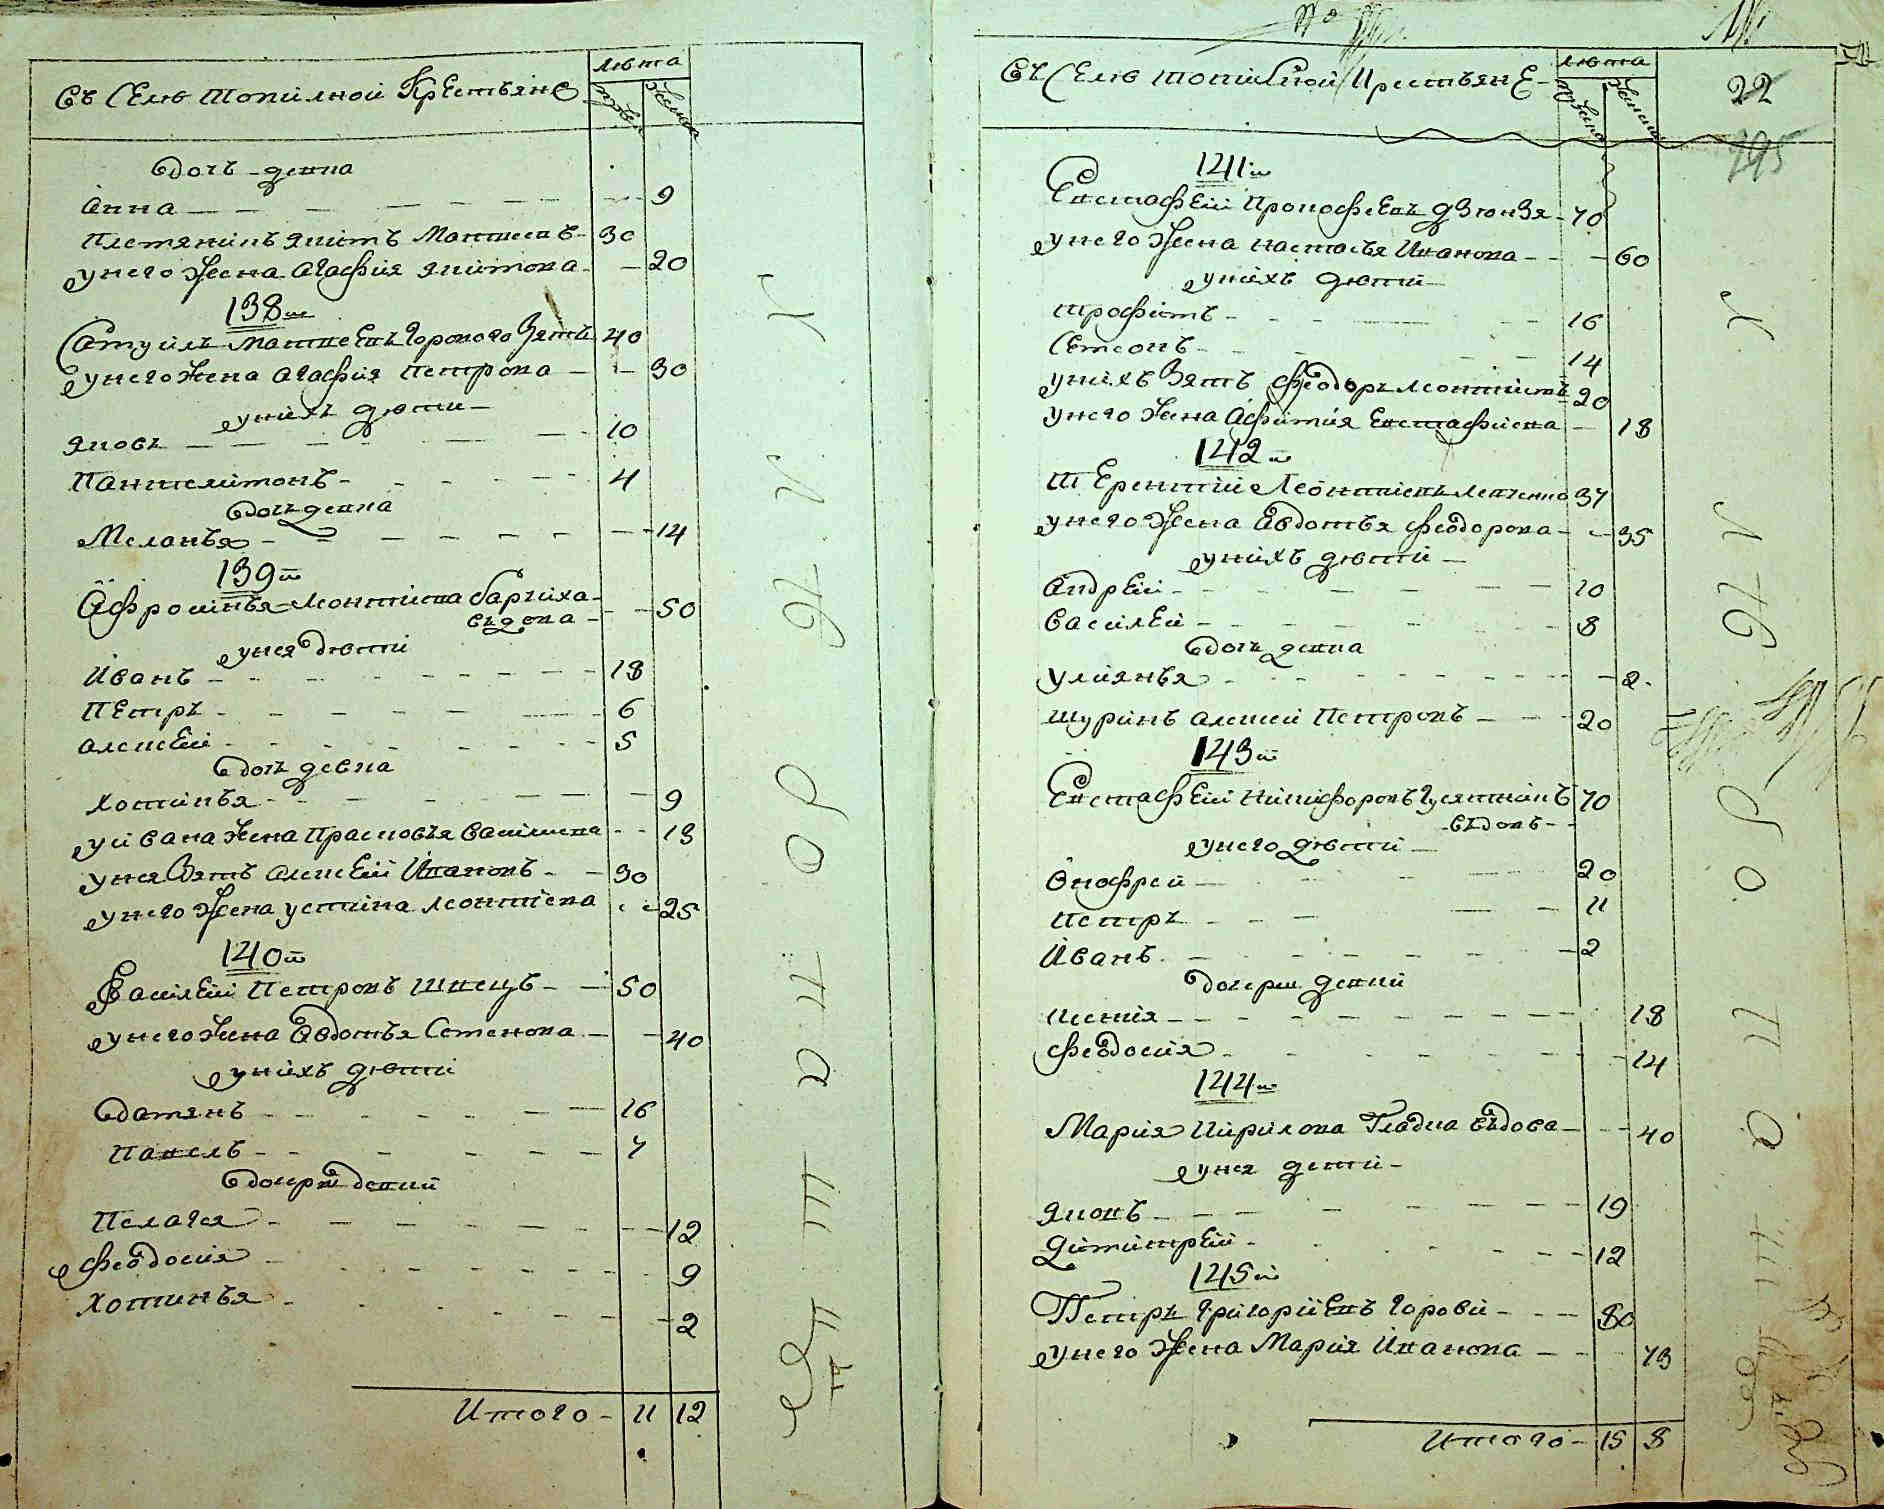 Въ Селѣ Топилной Крестьянѣ
лѣта
мужск
женск
дочь девка
Анна 9
Племянникъ Якимъ Матвеевъ 30
у него жена Агафия Якимова 20
138й
Самуилъ Матвеевъ Горового Зять 40
у него жена Агафия Петрова 30
у нихъ дѣти
Яковъ 10
Пантелимонъ 4
дочь девка
Меланья 14
139й
Афросинья Леонтиева
въдова 50
у нея дѣти
Иванъ 18
Петръ 6
Алексей 5
дочь девка
Хотинья 9
у Ивана жена Прасковья Василиева 18
у нея Зять Алексей Ивановъ 30
у него жена Устина Леонтиева 25
140й
Василей Петровъ Швецъ 50
у него жена Евдотья Семенова 40
у нихъ дѣти
Дамянъ 16
Павелъ 7
дочери девки
Пелагея 12
Феодосия 9
Хотинья 2
Итого 11 12
Въ Селѣ Топилной Крестьянѣ
лѣта
мужска
женска
22
295
141й
Евстафей Прокофьевъ Дзюнзя 70
у него жена Настасья Иванова 60
у нихъ дѣти
Трофимъ 16
Семионъ 14
у нихъ Зять Феодоръ Леонтиевъ 20
у него жена Афимия Евстафиева 18
142й
Терентий Леонтиевъ Левченко 37
у него жена Евдотья Феодорова 35
у нихъ дѣти
Андрей 10
Василей 8
дочь девка
Улиянья 2
шуринъ Алексей Петровъ 20
143й
Евстафей Никифоровъ Гусятникъ 70
въдовъ
у него дѣти
Онофрей 20
Петръ 11
Иванъ 2
дочери девки
Ксения 18
Феодосия 14
144й
Мария Кирилова Гладка въдова 40
у нея дети
Яковъ 19
Димитрей 12
145й
Петръ Григориевъ Горовий 80
у него жена Мария Иванова 73
Итого 15 8